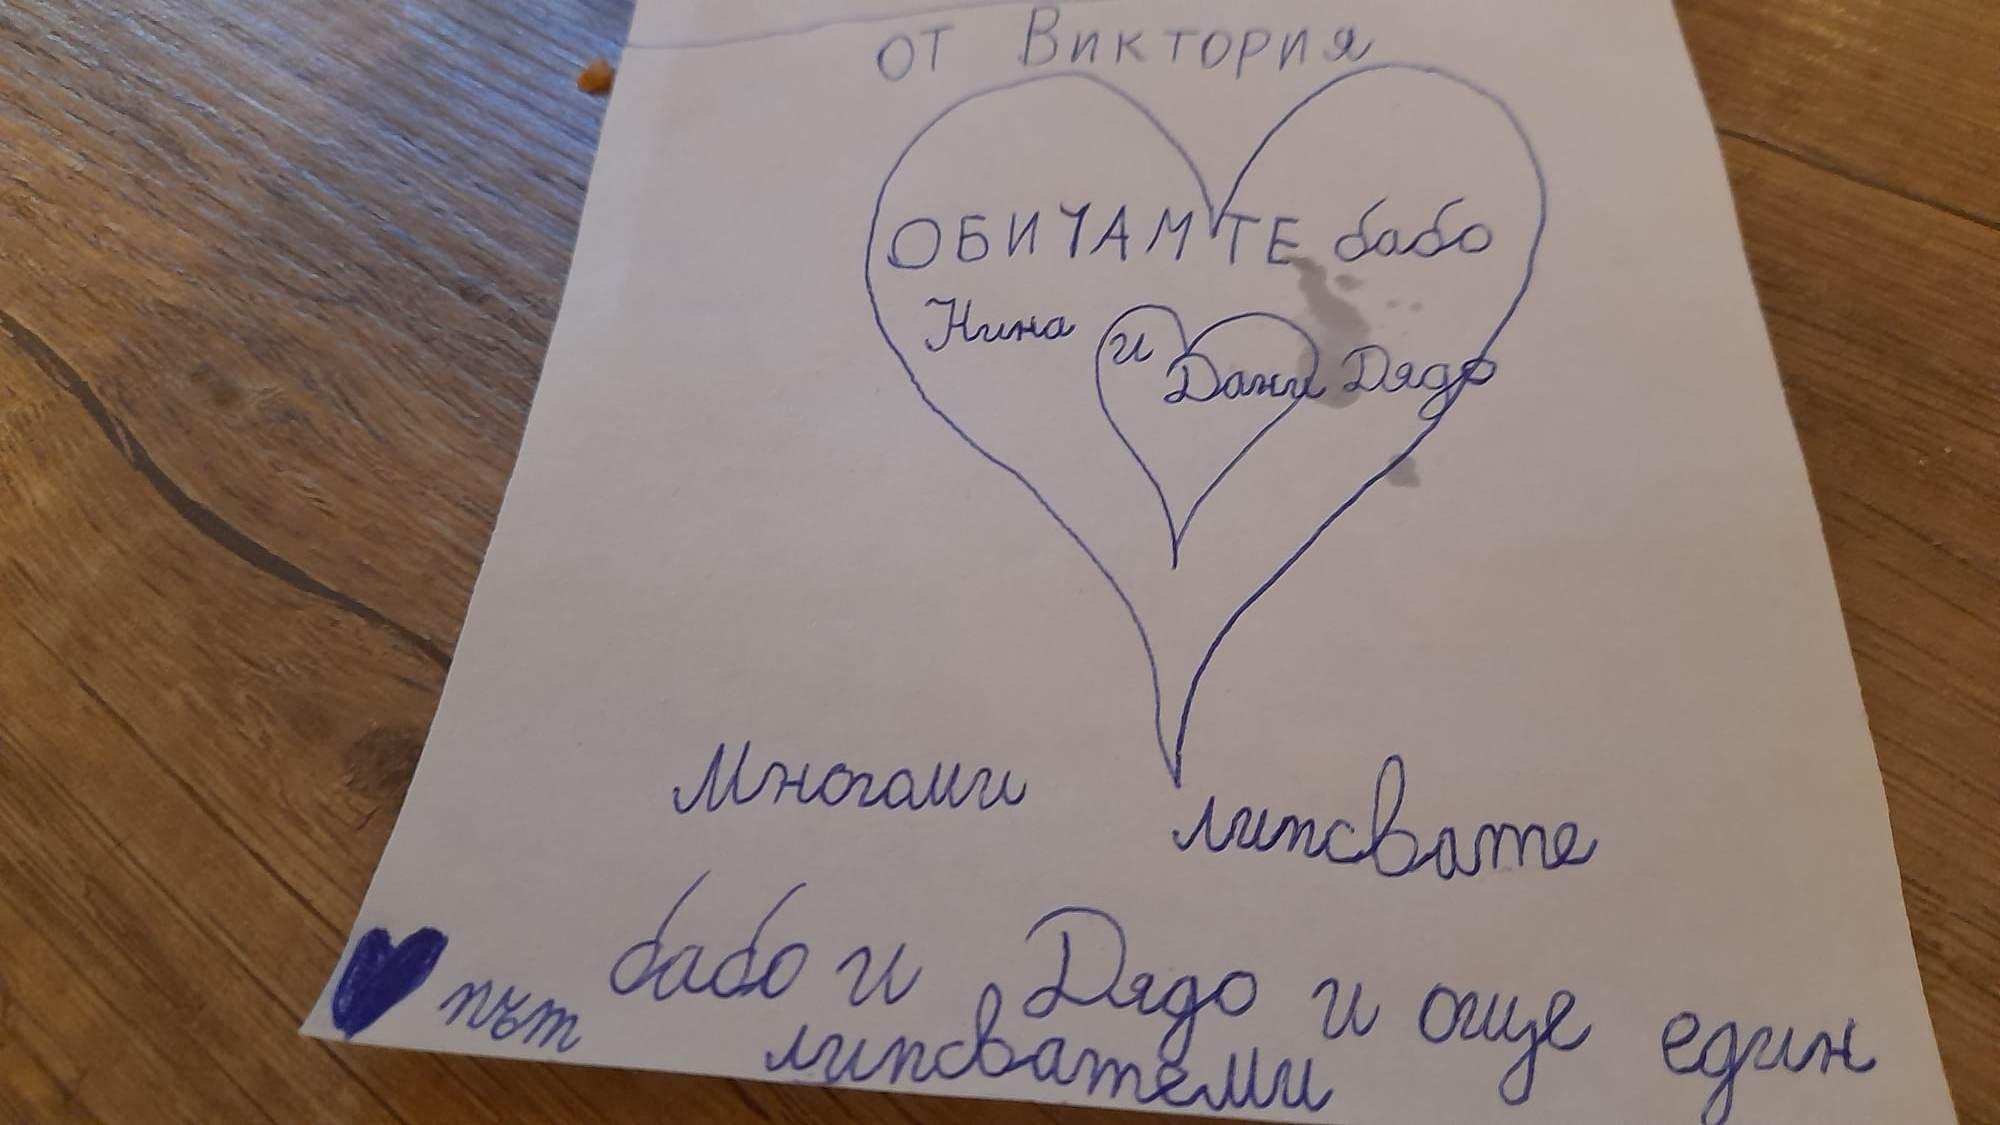 от Виктория
ОБИЧАМ ТЕ бабо
Нина и Дани Дядо
Многоми липсвате
бабо и Дядо и още един
път липсватеми